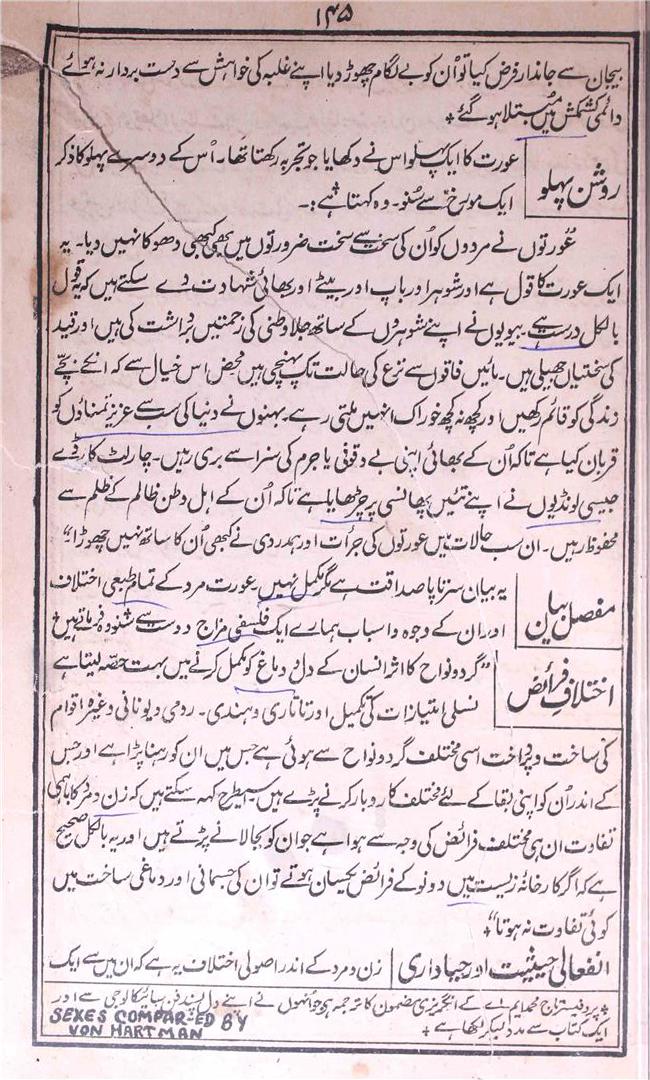 ۱۴۵
بیجان سے جاندار فرض کیا تو اُن کو بے لگام چھوڑ دیا اپنے غلبہ کی خواہش سے دست بردار نہ ہوئے
دائمی کشمکش میں مبتلا ہو گئے +
روشن پہلو
عورت کا ایک پہلو اس نے دکھایا جو تجربہ رکھتا تھا۔ اُس کے دوسرے پہلو کا ذکر
ایک مورخ سے سُنو۔ وہ کہتا ہے:۔
عورتوں نے مردوں کو اُن کی سخت سے سخت ضرورتوں میں بھی کبھی دھوکا نہیں دیا۔ یہ
ایک عورت کا قول ہے اور شوہر اور باپ اور بیٹے اور بھائی شہادت دے سکتے ہیں کہ یہ قول
بالکل درست ہے۔ بیویوں نے اپنے شوہروں کے ساتھ جلاوطنی کی زحمتیں برداشت کی ہیں اور قید
کی سختیاں جھیلی ہیں۔ مائیں فاقوں سے نزع کی حالت تک پہنچی ہیں محض اس خیال سے کہ انکے بچے
زندگی کو قائم رکھیں اور کچھ نہ کچھ خوراک انہیں ملتی رہے۔ بہنوں نے دنیا کی سب سے عزیز تمناؤں کو
قربان کیا ہے تاکہ اُن کے بھائی اپنی بے وقوفی یا جرم کی سزا سے بری رہیں۔ چارلٹ کارڈے
جیسی لونڈیوں نے اپنے تئیں پھانسی پر چڑھایا ہے تاکہ اُن کے اہل وطن ظالم کے ظلم سے
محفوظ رہیں۔ ان سب حالات میں عورتوں کی جرأت اور ہمدردی نے کبھی اُن کا ساتھ نہیں چھوڑا۔"
مفصل بیان
یہ بیان سرتاپا صداقت ہے مگر مکمل نہیں۔ عورت مرد کے تمام طبعی اختلاف
اور ان کے وجوہ و اسباب ہمارے ایک فلسفی مزاج دوست سے سُنو وہ فرماتے ہیں
اختلافِ فرائض
"گرد و نواح کا اثر انسان کے دل و دماغ کو مکمل کرنے میں بہت حصّہ لیتا ہے
نسلی امتیازات کی تکمیل اور تاتاری و ہندی۔ رومی و یونانی وغیرہ اقوام
کی ساخت و پرداخت اسی مختلف گرد و نواح سے ہوئی ہے جس میں ان کو رہنا پڑا ہے اور جس
کے اندر اُن کو اپنی بقا کے لئے مختلف کاروبار کرنے پڑے ہیں۔ اسیطرح کہہ سکتے ہیں کہ زن و مرد کا باہمی
تفاوت ان ہی مختلف فرائض کی وجہ سے ہوا ہے جو ان کو بجا لانے پڑتے ہیں اور یہ بالکل صحیح
ہے کہ اگر کارخانۂ زیست میں دونو کے فرائض یکساں ہوتے تو ان کی جسمانی اور دماغی ساخت میں
کوئی تفاوت نہ ہوتا"+
انفعالی حیثیت اور جہاداری
زن و مرد کے اندر اصولی اختلاف یہ ہے کہ ان میں سے ایک
+ پروفیسر تاج محمد ایم اے کے انگریزی مضمون کا ترجمہ ہے جو اُنہوں نے اپنے دل پسند فن سائیکالوجی سے اور
ایک کتاب سے مدد لیکر لکھا ہے +
SEXES COMPAR-ED BY
VON HARTMAN